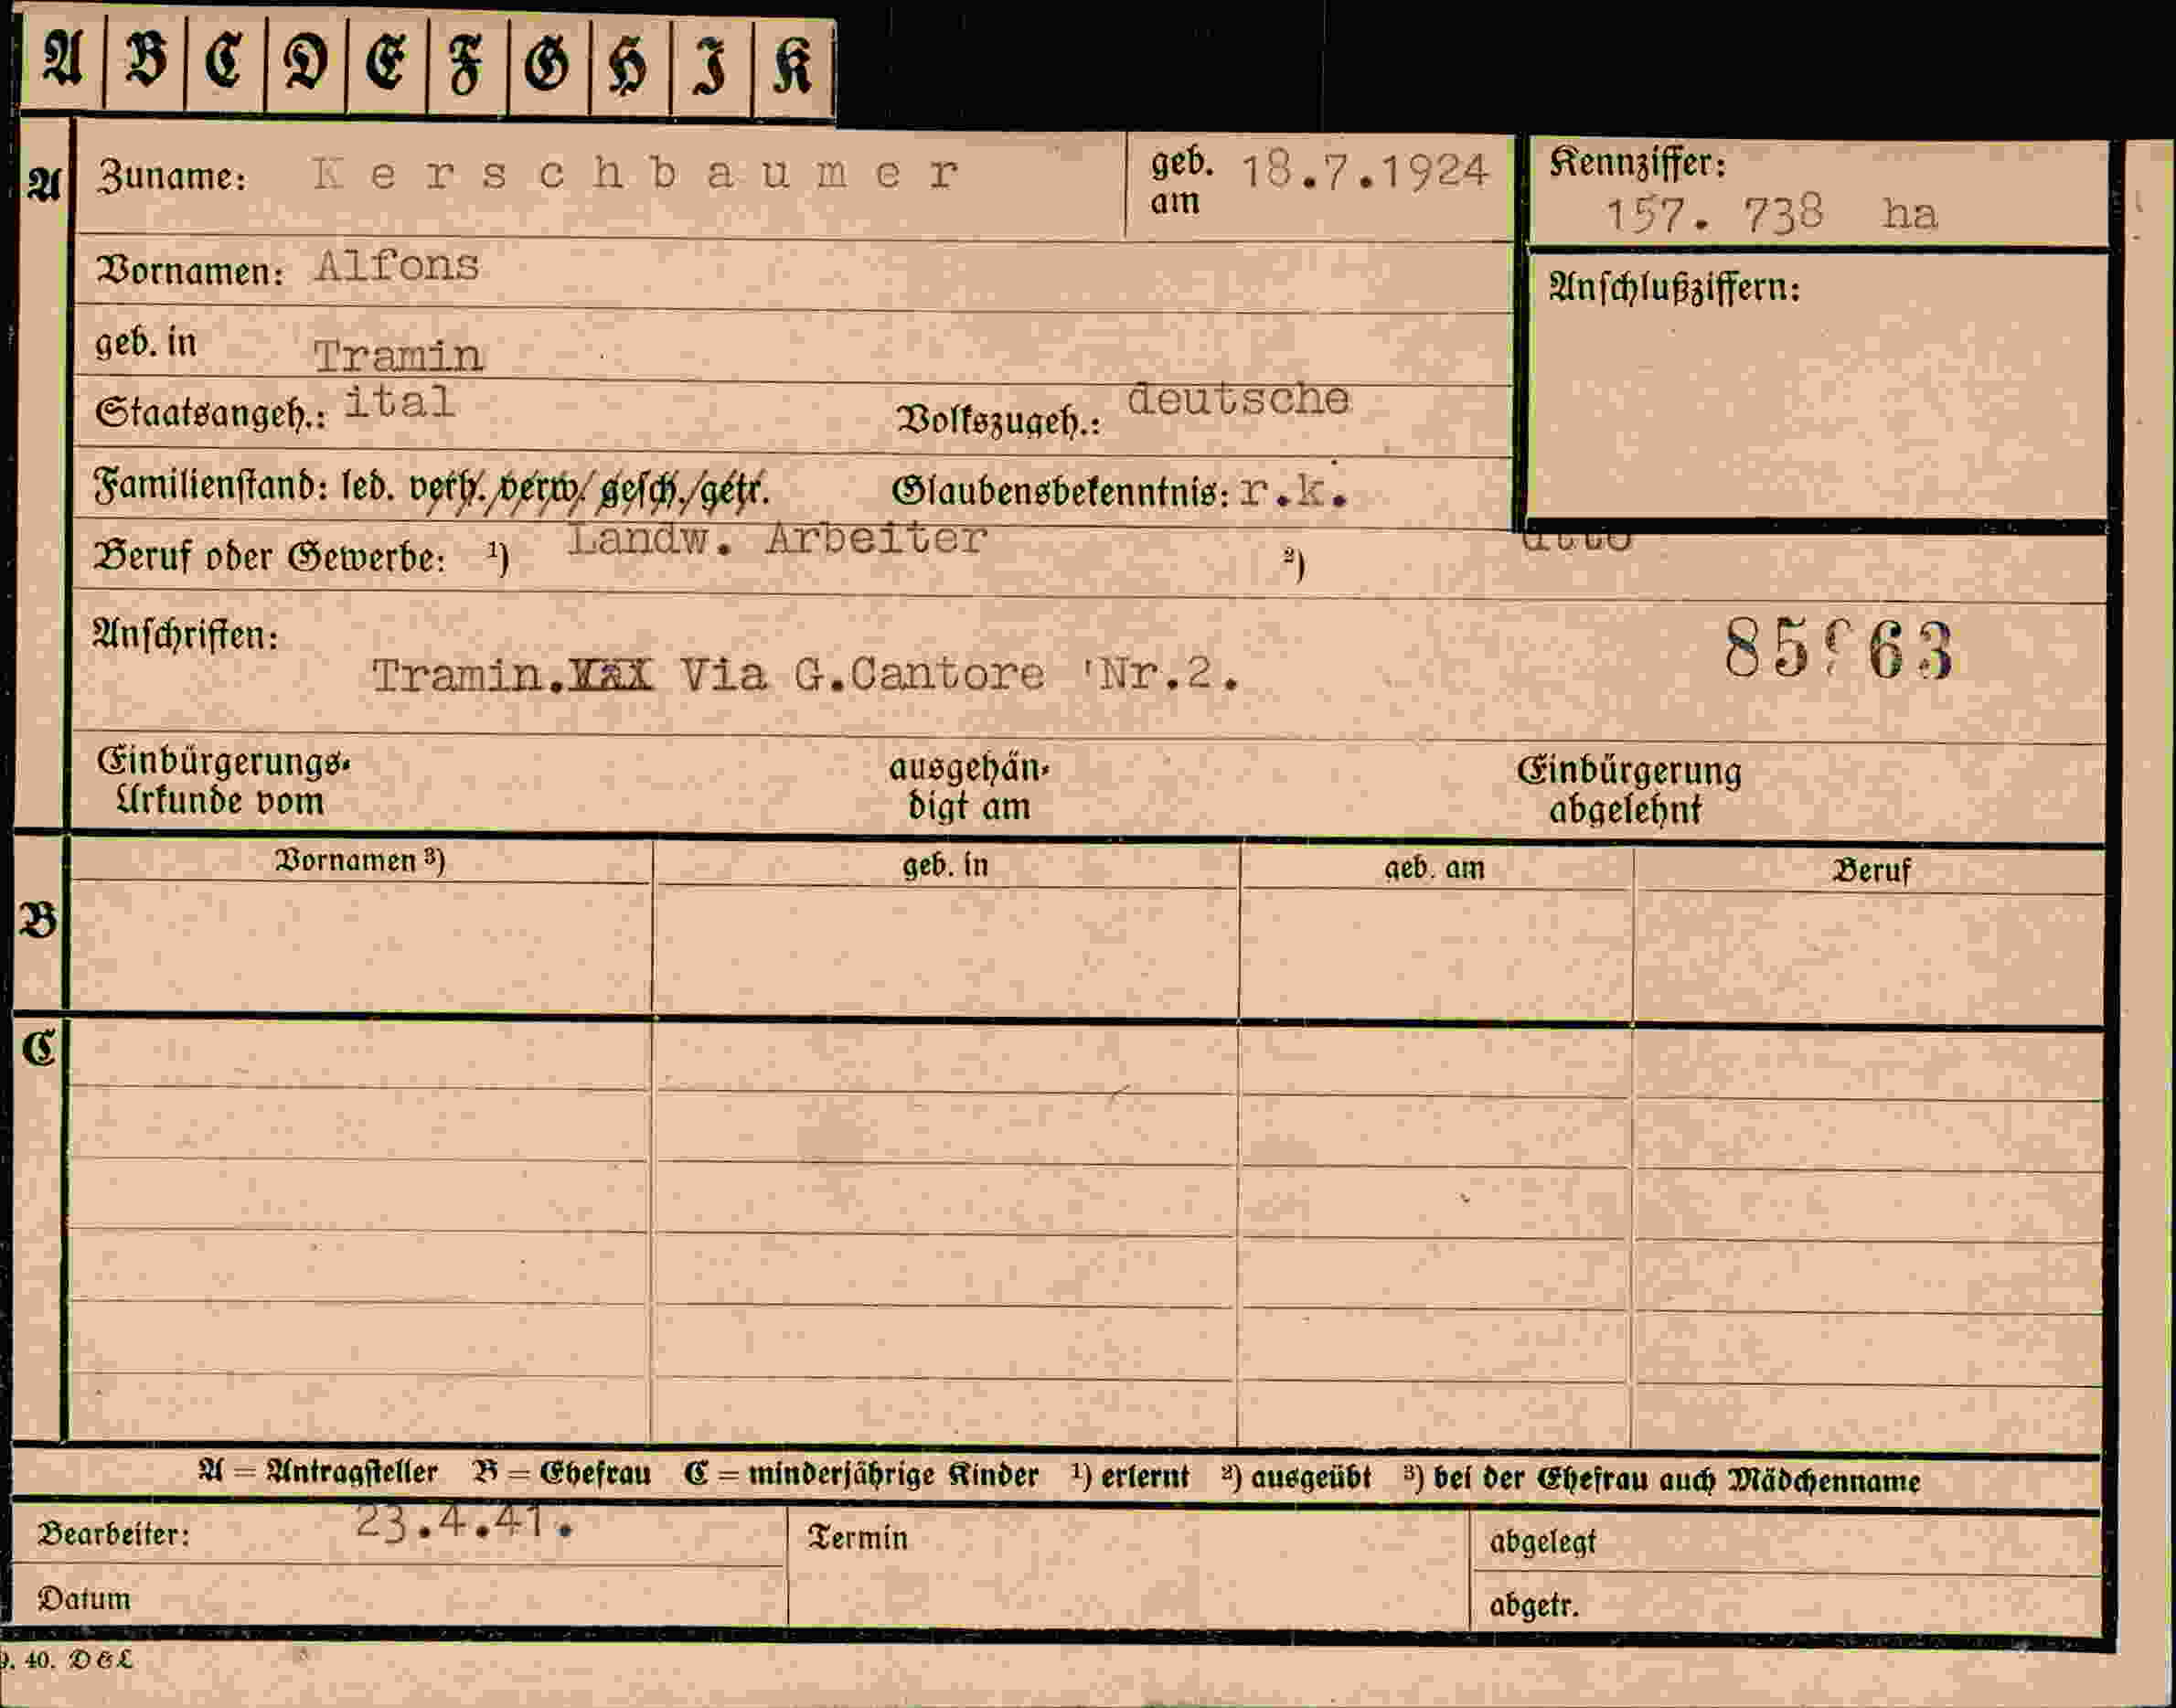 A B C D E F G H I K
A Zuname: Kerschbaumer geb. am 18.7.1924 Kennziffer: 157. 738 ha
Vornamen: Alfons Anschlußziffern:
geb. in Tramin
Staatsangeh.: ital Volkszugeh.: deutsche
Familienstand: led. verh./verw/gesch./getr. Glaubensbekenntnis: r.k.
Beruf oder Gewerbe: ¹) Landw. Arbeiter ²) dtto
Anschriften:
Tramin. Via G.Cantore Nr.2.
Einbürgerungs- ausgehän- Einbürgerung
Urkunde vom digt am abgelehnt
Vornamen ³) geb. in geb. am Beruf
B
C
A = Antragsteller B = Ehefrau C = minderjährige Kinder ¹) erlernt ²) ausgeübt ³) bei der Ehefrau auch Mädchenname
Bearbeiter: 23.4.41. Termin abgelegt
Datum abgetr.
40. D & L